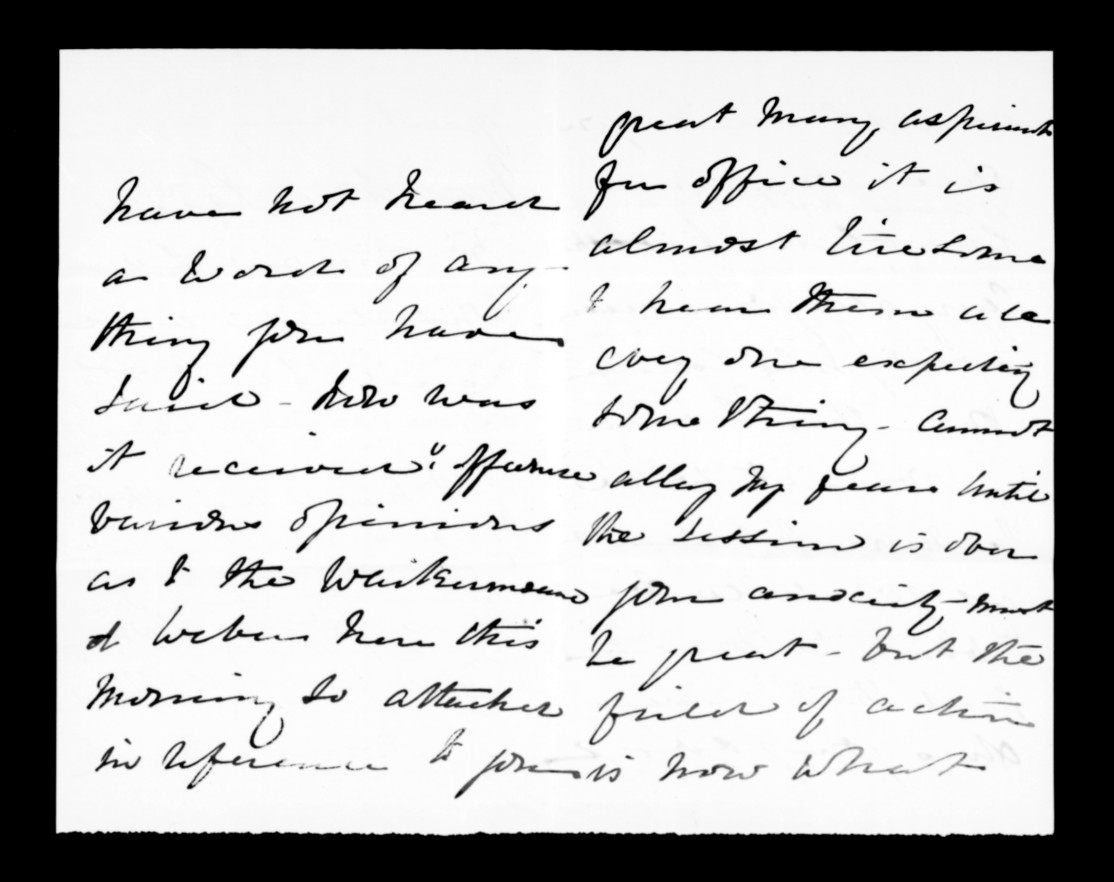 have not heard
a word of any-
thing you have
said - how was
it received" 
various opinions
as to the
& Weber here this
morning so attached
in reference to you
great many aspirants
for office it is
almost tiresome
to hear them all
every one expecting
something - cannot
allay my fears until
the session is over
your anxiety must
be great - but the
field of action
is now what